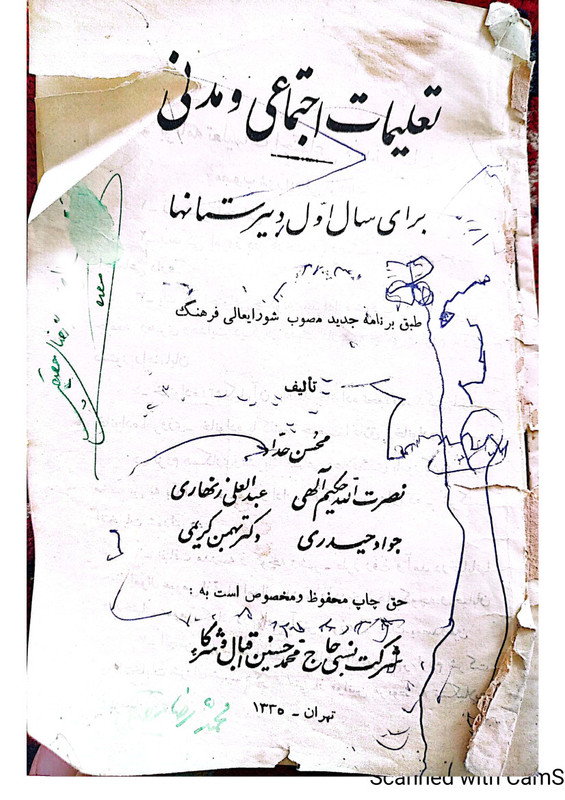 تعلیمات اجتماعی و مدنی
برای سال اول دبیرستانها
طبق برنامه جدید مصوب شورایعالی فرهنگ
تألیف
محسن حداد
نصرت الله حکیم آلهی
عبدالعلی زنهاری
جواد حیدری
دکتر بهمن کریمی
حق چاپ محفوظ و مخصوص است به :
شرکت نسبی حاج محمد حسین اقبال و شرکاء
تهران - ۱۳۳۵
Scanned with CamS